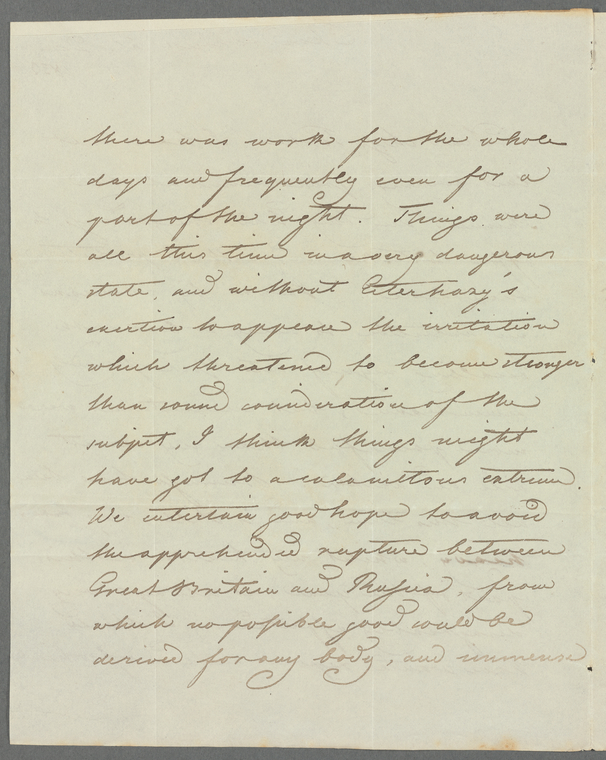 there was work for the whole
days and frequently even for a
part of the night. Things were
all this time in a very dangerous
state, and without Esterhazy's
exertion to appease the irritation
which threatened to become stronger
than sound consideration of the
subject, I think things might
have got to a calamitous extreme.
We entertain good hope to avoid
the apprehended rupture between
Great Britain and Russia, from
which no possible good could be
derived for any body, and immense